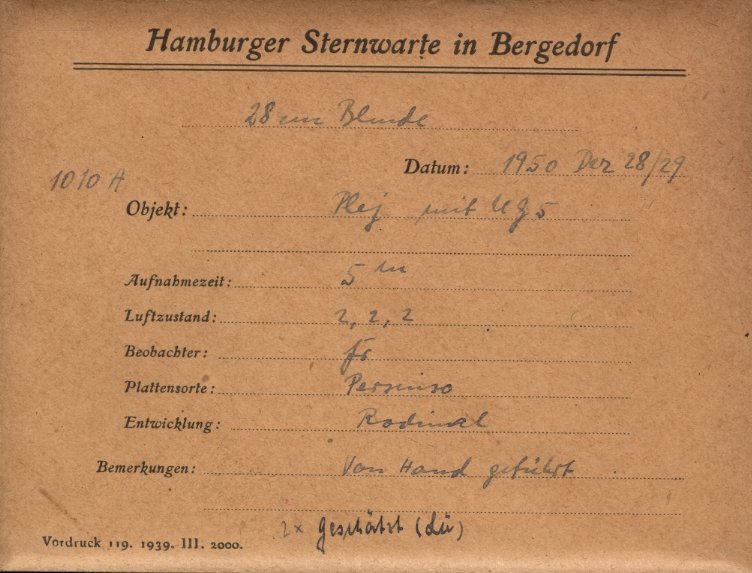 Hamburger Sternwarte in Bergedorf
28 cm Blende
Datum: 1950 Dez 28/29
1010 H
Objekt: Plej mit UG5
Aufnahmezeit: 5 m
Luftzustand: 2, 2, 2
Beobachter: fr
Plattensorte: Persenso
Entwicklung: Rodinal
Bemerkungen: Von Hand geführt
2x geschätzt (Lü)
Vordruck 119. 1939. III. 2000.